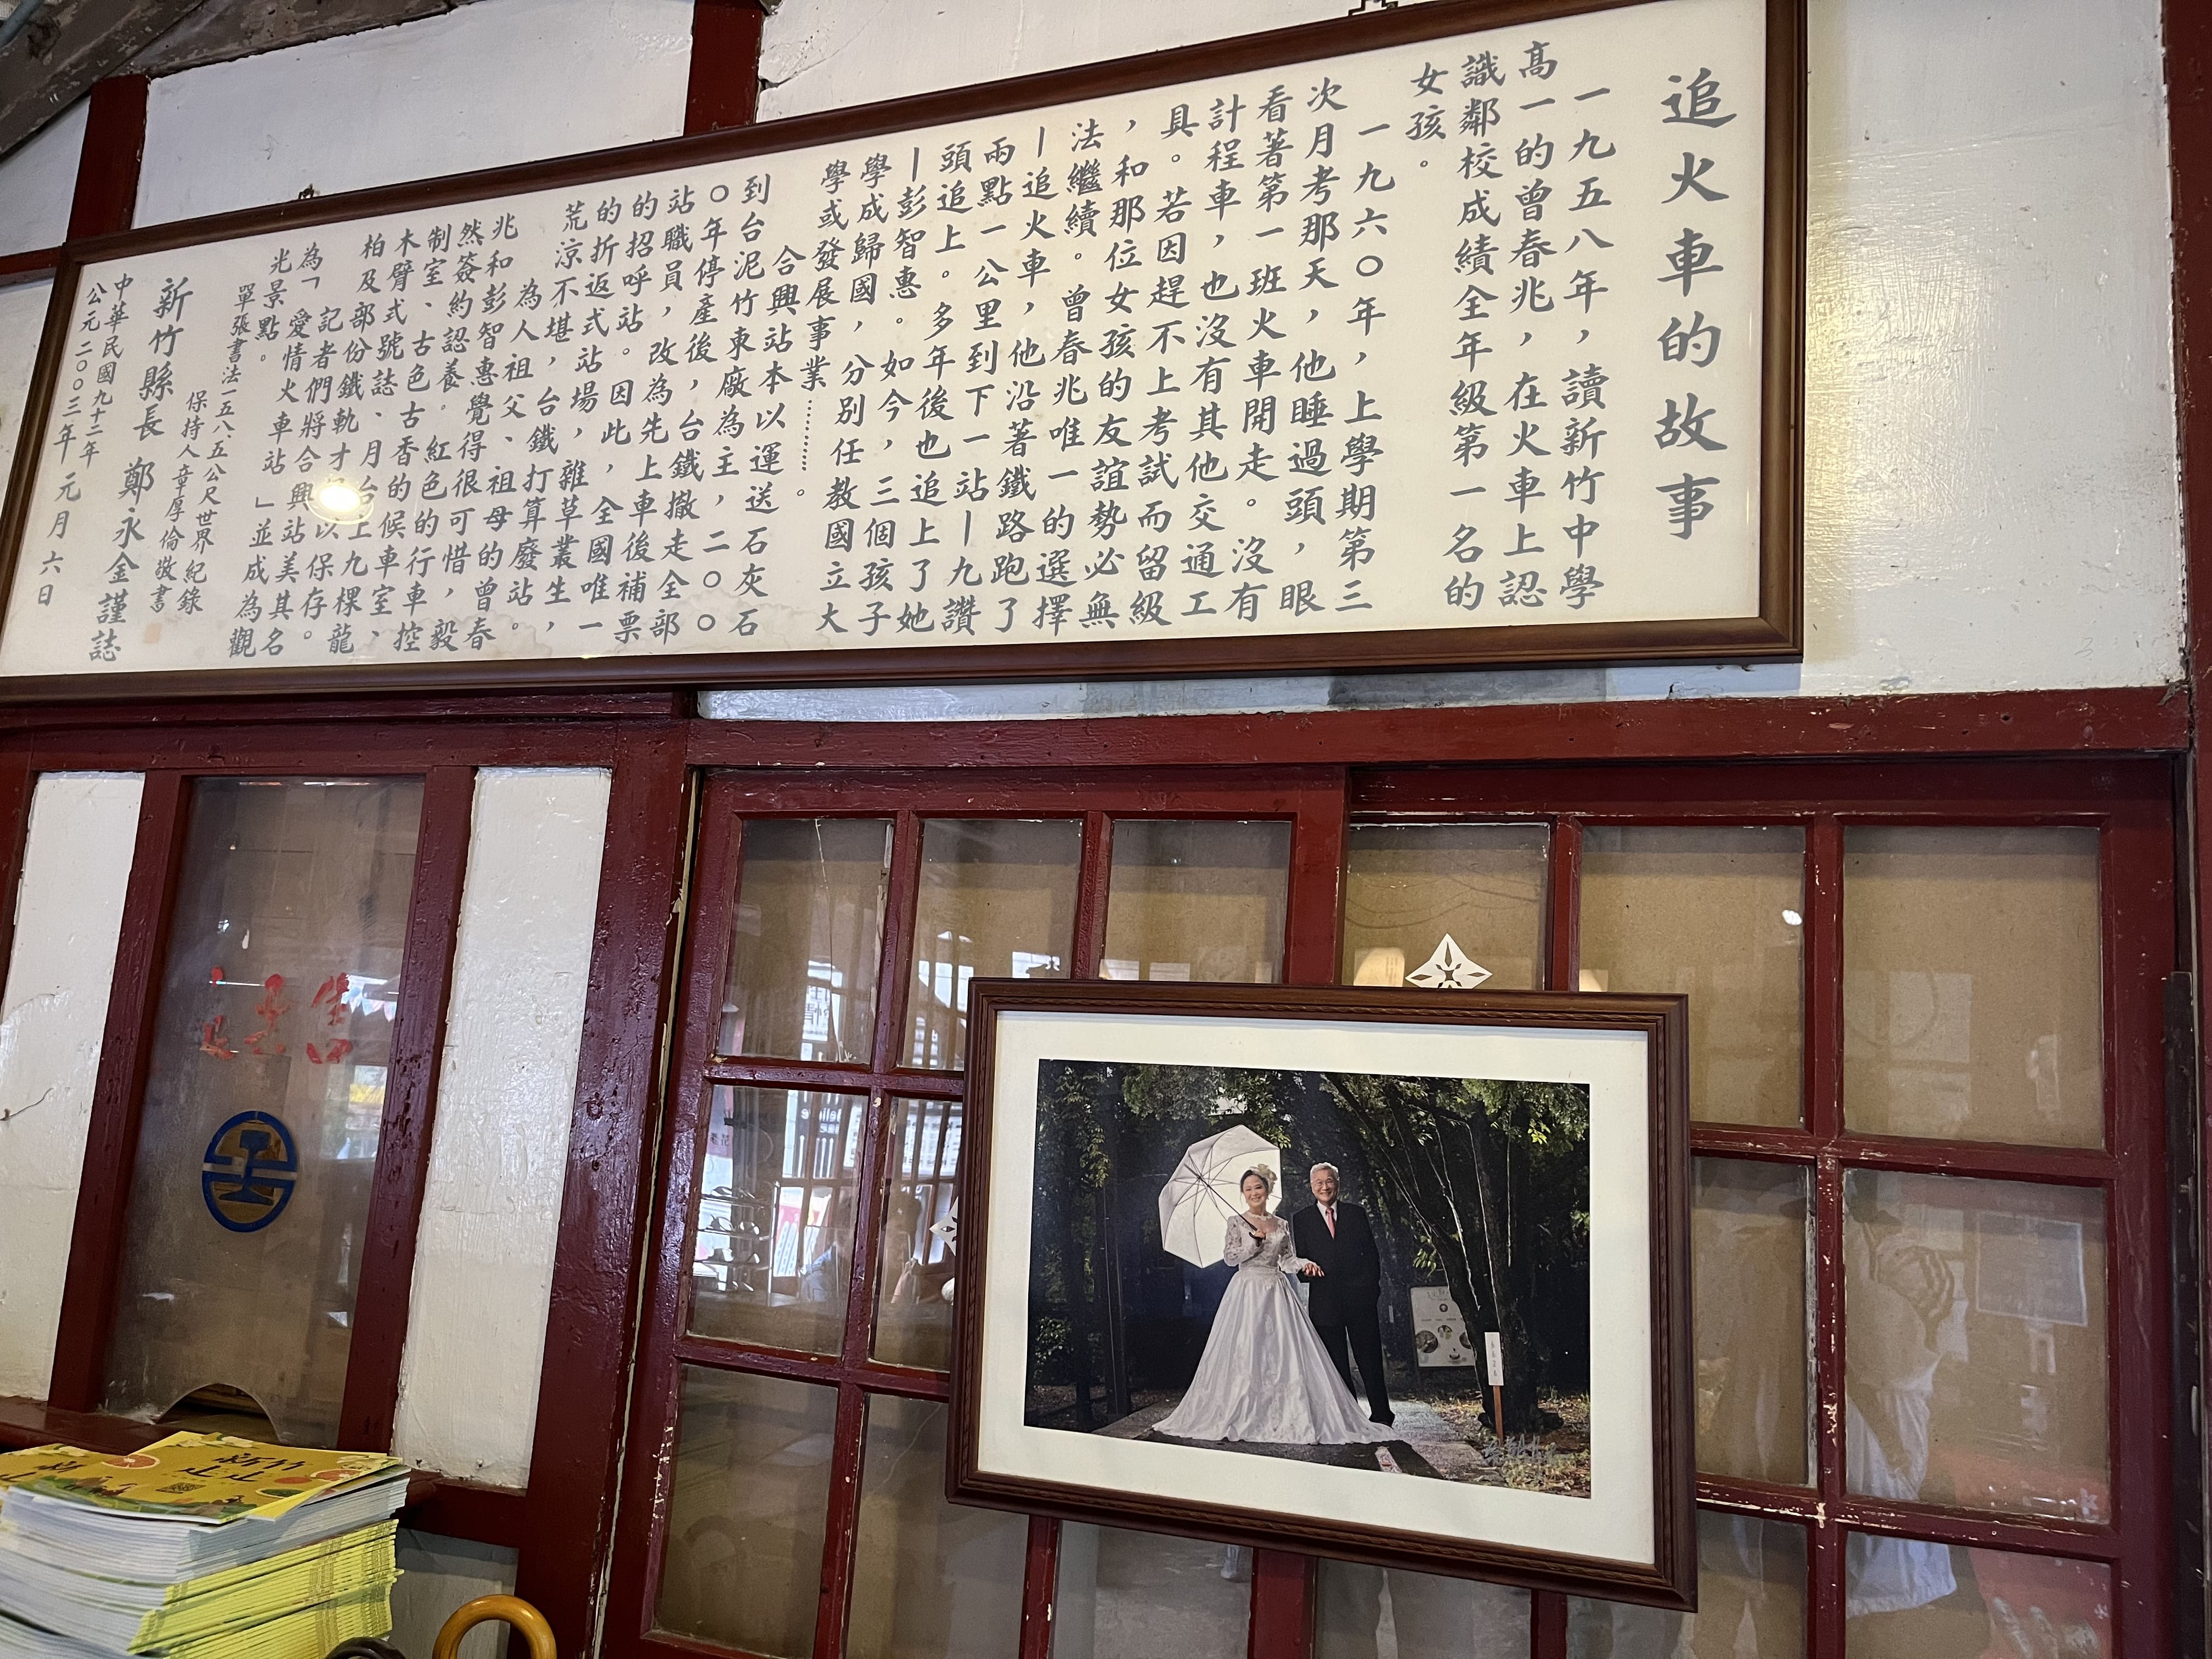 追火車的故事
一九五八年，讀新竹中學
高一的曾春兆，在火車上認
識鄰校成績全年級第一名的
女孩。
一九六〇年，上學期第三
次月考那天，他睡過頭，眼
看著第一班火車開走。沒有
計程車，也沒有其他交通工
具。若因趕不上考試而留級
，和那位女孩的友誼勢必無
法繼續。曾春兆唯一的選擇
—追火車，他沿著鐵路跑了
兩點一公里到下一站—九讚
頭追上。多年後也追上了她
—彭智惠。如今，三個孩子
學成歸國，分別任教國立大
學或發展事業⋯⋯⋯。
合興站本以運送石灰石
到台泥竹東廠為主，二〇〇
〇年停產後，台鐵撤走全部
站職員，改為先上車後補票
的招呼站。因此，全國唯一
的折返式站場，雜草叢生，
荒涼不堪，台鐵打算廢站。
為人祖父、祖母的曾春
兆和彭智惠覺得很可惜，毅
然簽約認養。紅色的行車控
制室、古色古香的候車室、
木臂式號誌、月台上九棵龍
柏及部份鐵軌才以保存。
記者們將合興站美其名
為「愛情火車站」並成為觀
光景點。
單張書法一五八.五公尺世界紀錄
保持人章厚倫敬書
新竹縣長 鄭永金謹誌
中華民國九十二年
公元二〇〇三年元月六日
新竹
走走